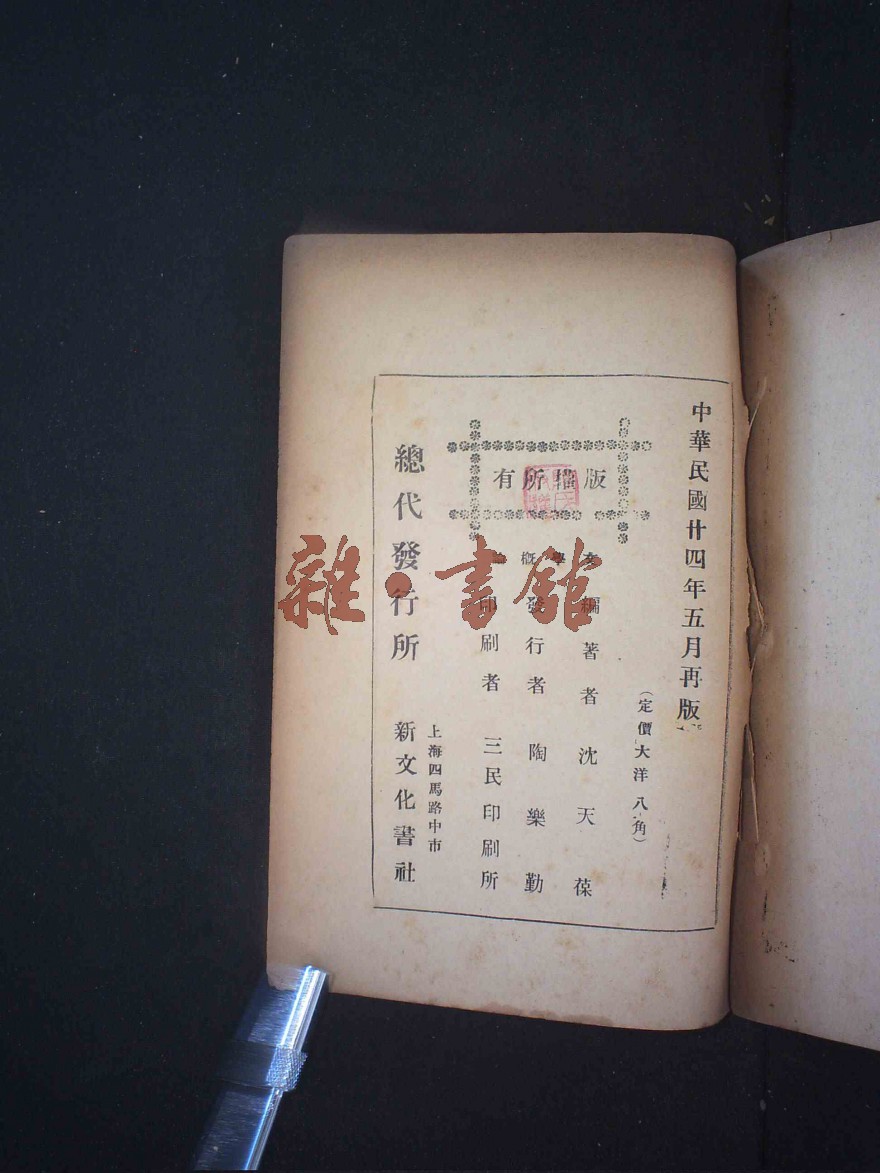 中華民國廿四年五月再版
(定價大洋八角)
版權所有
文學概論
編著者 沈天葆
發行者 陶樂勤
印刷者 三民印刷所
上海四馬路中市
總代發行所 新文化書社
雜·書館